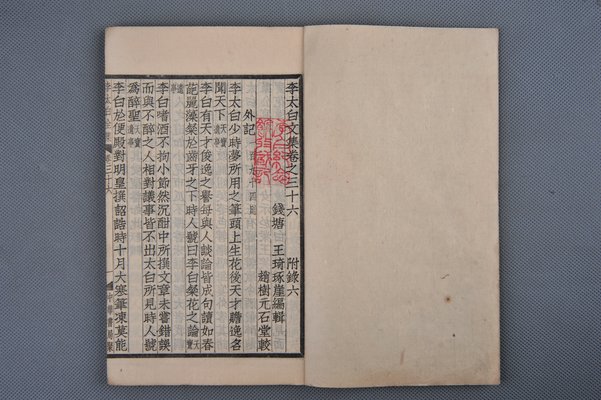 李太白文集卷之三十六 附錄六
錢塘 王琦琢崖編輯
趙樹元石堂較
外記
李太白少時夢所用之筆頭上生花後天才贍逸名
聞天下天寶遺事
李白有天才俊逸之譽每與人談論皆成句讀如春
葩麗藻粲於齒牙之下時人號曰李白粲花之論天寶
遺事
李白嗜酒不拘小節然沉酣中所撰文章未嘗錯誤
而與不醉之人相對議事皆不出太白所見時人號
為醉聖天寶遺事
李白於便殿對明皇撰詔誥時十月大寒筆凍莫能
李太白
卷三十六